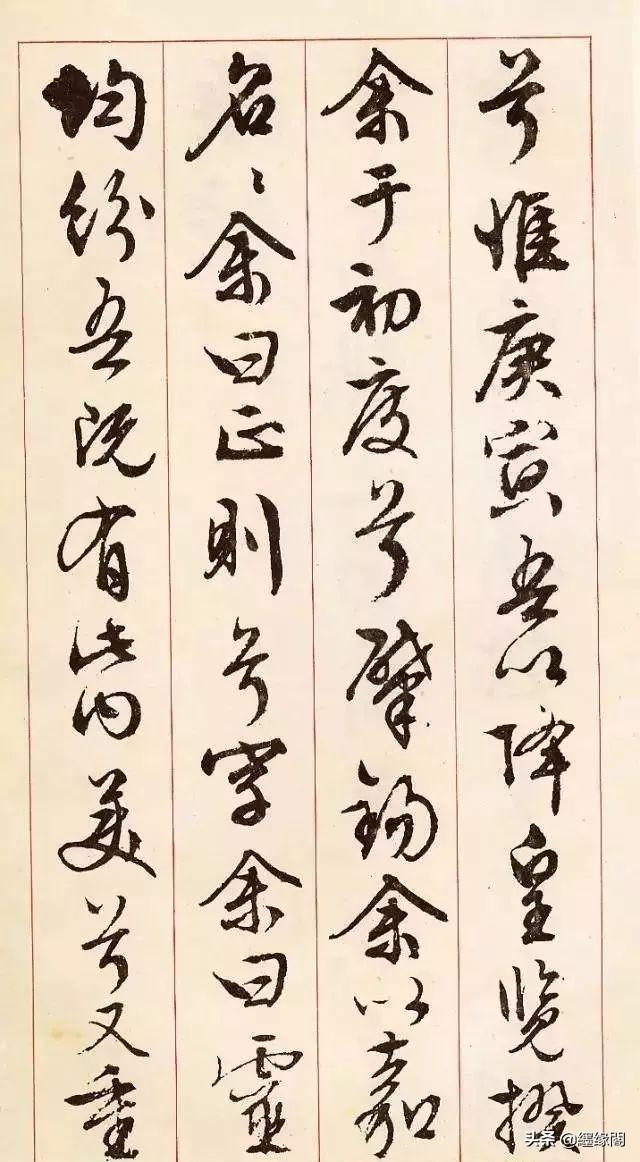 兮惟庚寅吾以降皇覽揆
余于初度兮肇錫余以嘉
名〻余曰正則兮字余曰靈
均紛吾既有此内美兮又重
头条 @繮缘閣